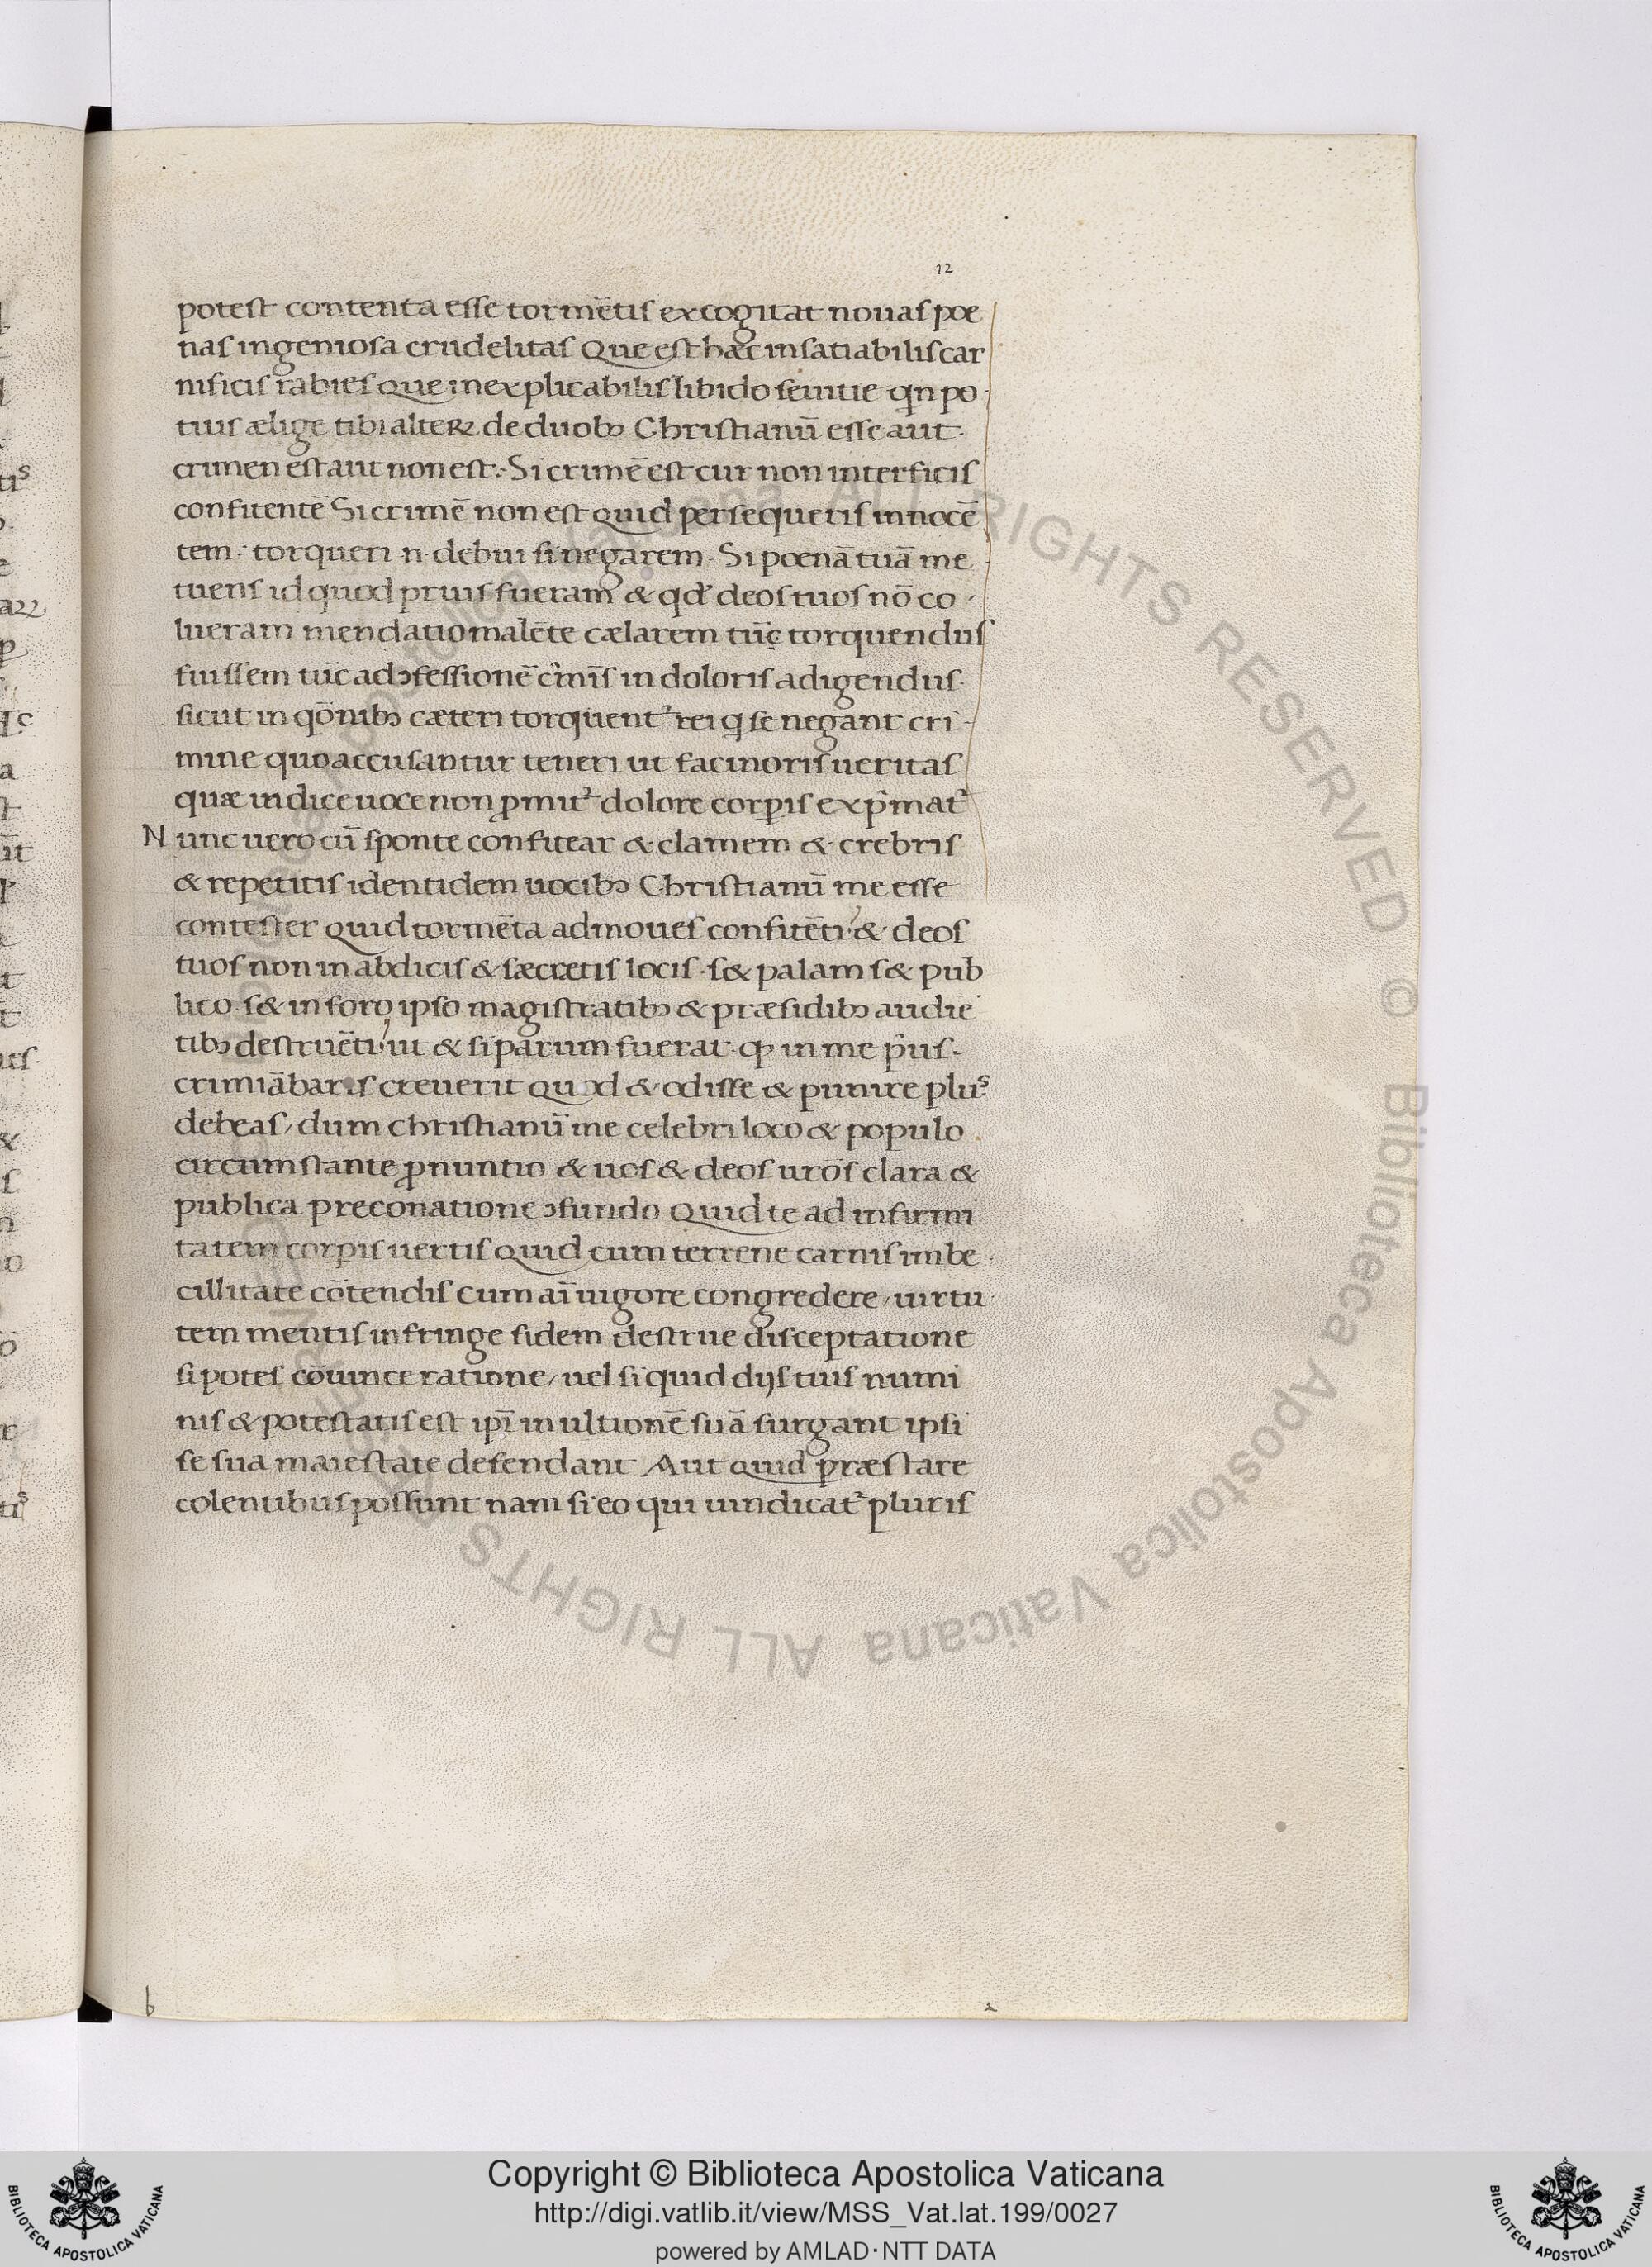 12
potest contenta esse tormētis excogitat nouas poe
nas ingeniosa crudelitas Que est hæc insatiabilis car
nificis rabies que inexplicabilis libido seuitie qn po
tius ælige tibi alteꝝ de duobꝫ Christianū esse aut
crimen est aut non est. Si crimē est cur non interficis
confitentē Si crimē non est quid persequeris innocē
tem: torqueri .n. debui si negarem. Si poenā tuā me
tuens id quod prius fueram & qd̛ deos tuos nō co
lueram mendatio malēte cælarem tūc torquendus
fuissem tūc ad ↄfessionē c̛mīs in doloris adigendus
sicut in qōnibꝫ cæteri torquent᷑ rei q se negant cri-
mine quo accusantur teneri ut facinoris ueritas
quæ indice uoce non ꝓmit᷑ dolore corꝑis exp̛mat᷑
Nunc uero cū sponte confitear & clamem & crebris
& repetitis identidem uocibꝫ Christianū me esse
contester quid tormēta admoues confitēti? & deos
tuos non in abdicis & sæcretis locis . s& palam s& pub
lico . s& in foro ipso magistratibꝫ & præsidibꝫ audiē
tibꝫ destruēti? ut & si parum fuerat . ꝙ in me p̛us .
crimiābaris creuerit quod & odisse & punire plu᷒
debeas, dum christianū me celebri loco & populo
circumstante ꝓnuntio & uos & deos ur̄os clara &
publica preconatione ↄfundo Quid te ad infirmi
tatem corꝑis uertis quid cum terrene carnis imbe
cillitate cōtendis cum aī uigore congredere, uirtu
tem mentis infringe fidem destrue disceptatione
si potes cōuince ratione, uel si quid dijs tuis numi
nis & potestatis est ipī in ultionē suā surgant ipsi
se sua maiestate defendant Aut quid præstare
colentibus possunt nam si eo qui uindicat᷑ pluris
b
Copyright © Biblioteca Apostolica Vaticana
http://digi.vatlib.it/view/MSS_Vat.lat.199/0027
powered by AMLAD·NTT DATA
BIBLIOTECA APOSTOLICA VATICANA
BIBLIOTECA APOSTOLICA VATICANA